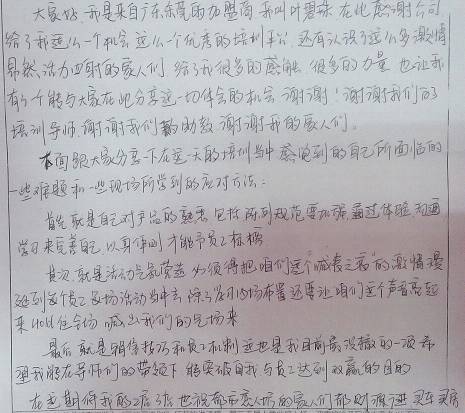 大家好，我是来自广东东莞的加盟商 我叫叶碧珠 在此感谢公司
给了我这么一个机会 这么一个优秀的培训平台 还有认识了这么多激情
昂然、活力四射的家人们 给了我很多的感触 很多的力量 也让我
有一个能与大家在此分享这一切体会的机会 谢谢！谢谢我们的
培训导师，谢谢我们的助教 谢谢我的家人们。
下面跟大家分享一下在这一天的培训当中 感觉到的自己所面临的
一些难题和一些现场所学到的应对方法：
首先就是自己对产品的熟悉 包括陈列规范要加强 通过体验 沟通
学习来完善自己，以身作则 才能予员工标榜
其次，就是活动气氛营造 必须得把咱们这个"喊麦之高"的激情 漫
延到每个员工 及场活动当中去 除了及时的场布置 还要让咱们这个声音亮起
来 hold住全场 喊出我们的气场来
最后 就是销售技巧和员工机制 这也是我目前最没辙的一项 希
望我能在导师们的带领下 能突破自我 与员工达到双赢的目的
在这期待我的店 也祝都在座的家人们都财源滚滚 买车 买房